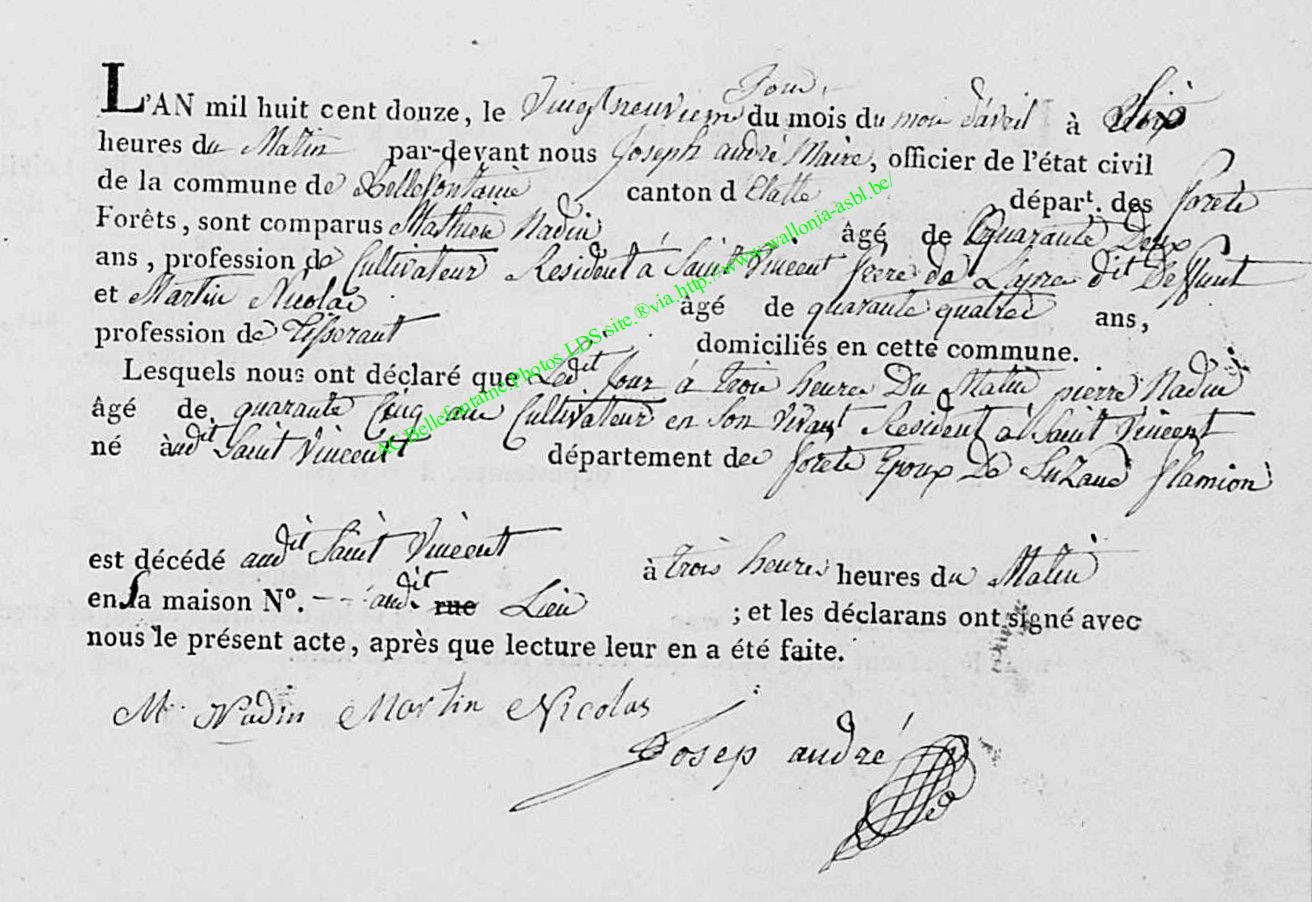 L'AN mil huit cent douze, le Vingt neuviem Jour du mois du moi d'avril à Dix
heures du Matin par-devant nous Joseph andré Maire, officier de l'état civil
de la commune de Bellefontaine canton d'Etalle départ. des foretè
Forêts, sont comparus Mathieu Nadin âgé de Quarante Deux
ans, profession de Cultivateur Resident à Saint Vincent frere de Lynre dit Deffunt
et Martin Nicolas âgé de quarante quatre ans,
profession de Tisserant domiciliés en cette commune.
Lesquels nous ont déclaré que Ledit Jour à trois heures Du Matin pierre Nadin
âgé de quarante Cinq ans Cultivateur en Son Vivant Resident à Saint Vincent
né audit Saint Vincent département de forete Epoux De Suzane flamion
est décédé audit Saint Vincent à trois heures heures du Matin
en Sa maison N°. - - - audit rue Lieu ; et les déclarans ont signé avec
nous le présent acte, après que lecture leur en a été faite.
M. Nadin Martin Nicolas
Josep andré
AC Bellefontaine Photos LDS site ® via http://www.wallonia-asbl.be/